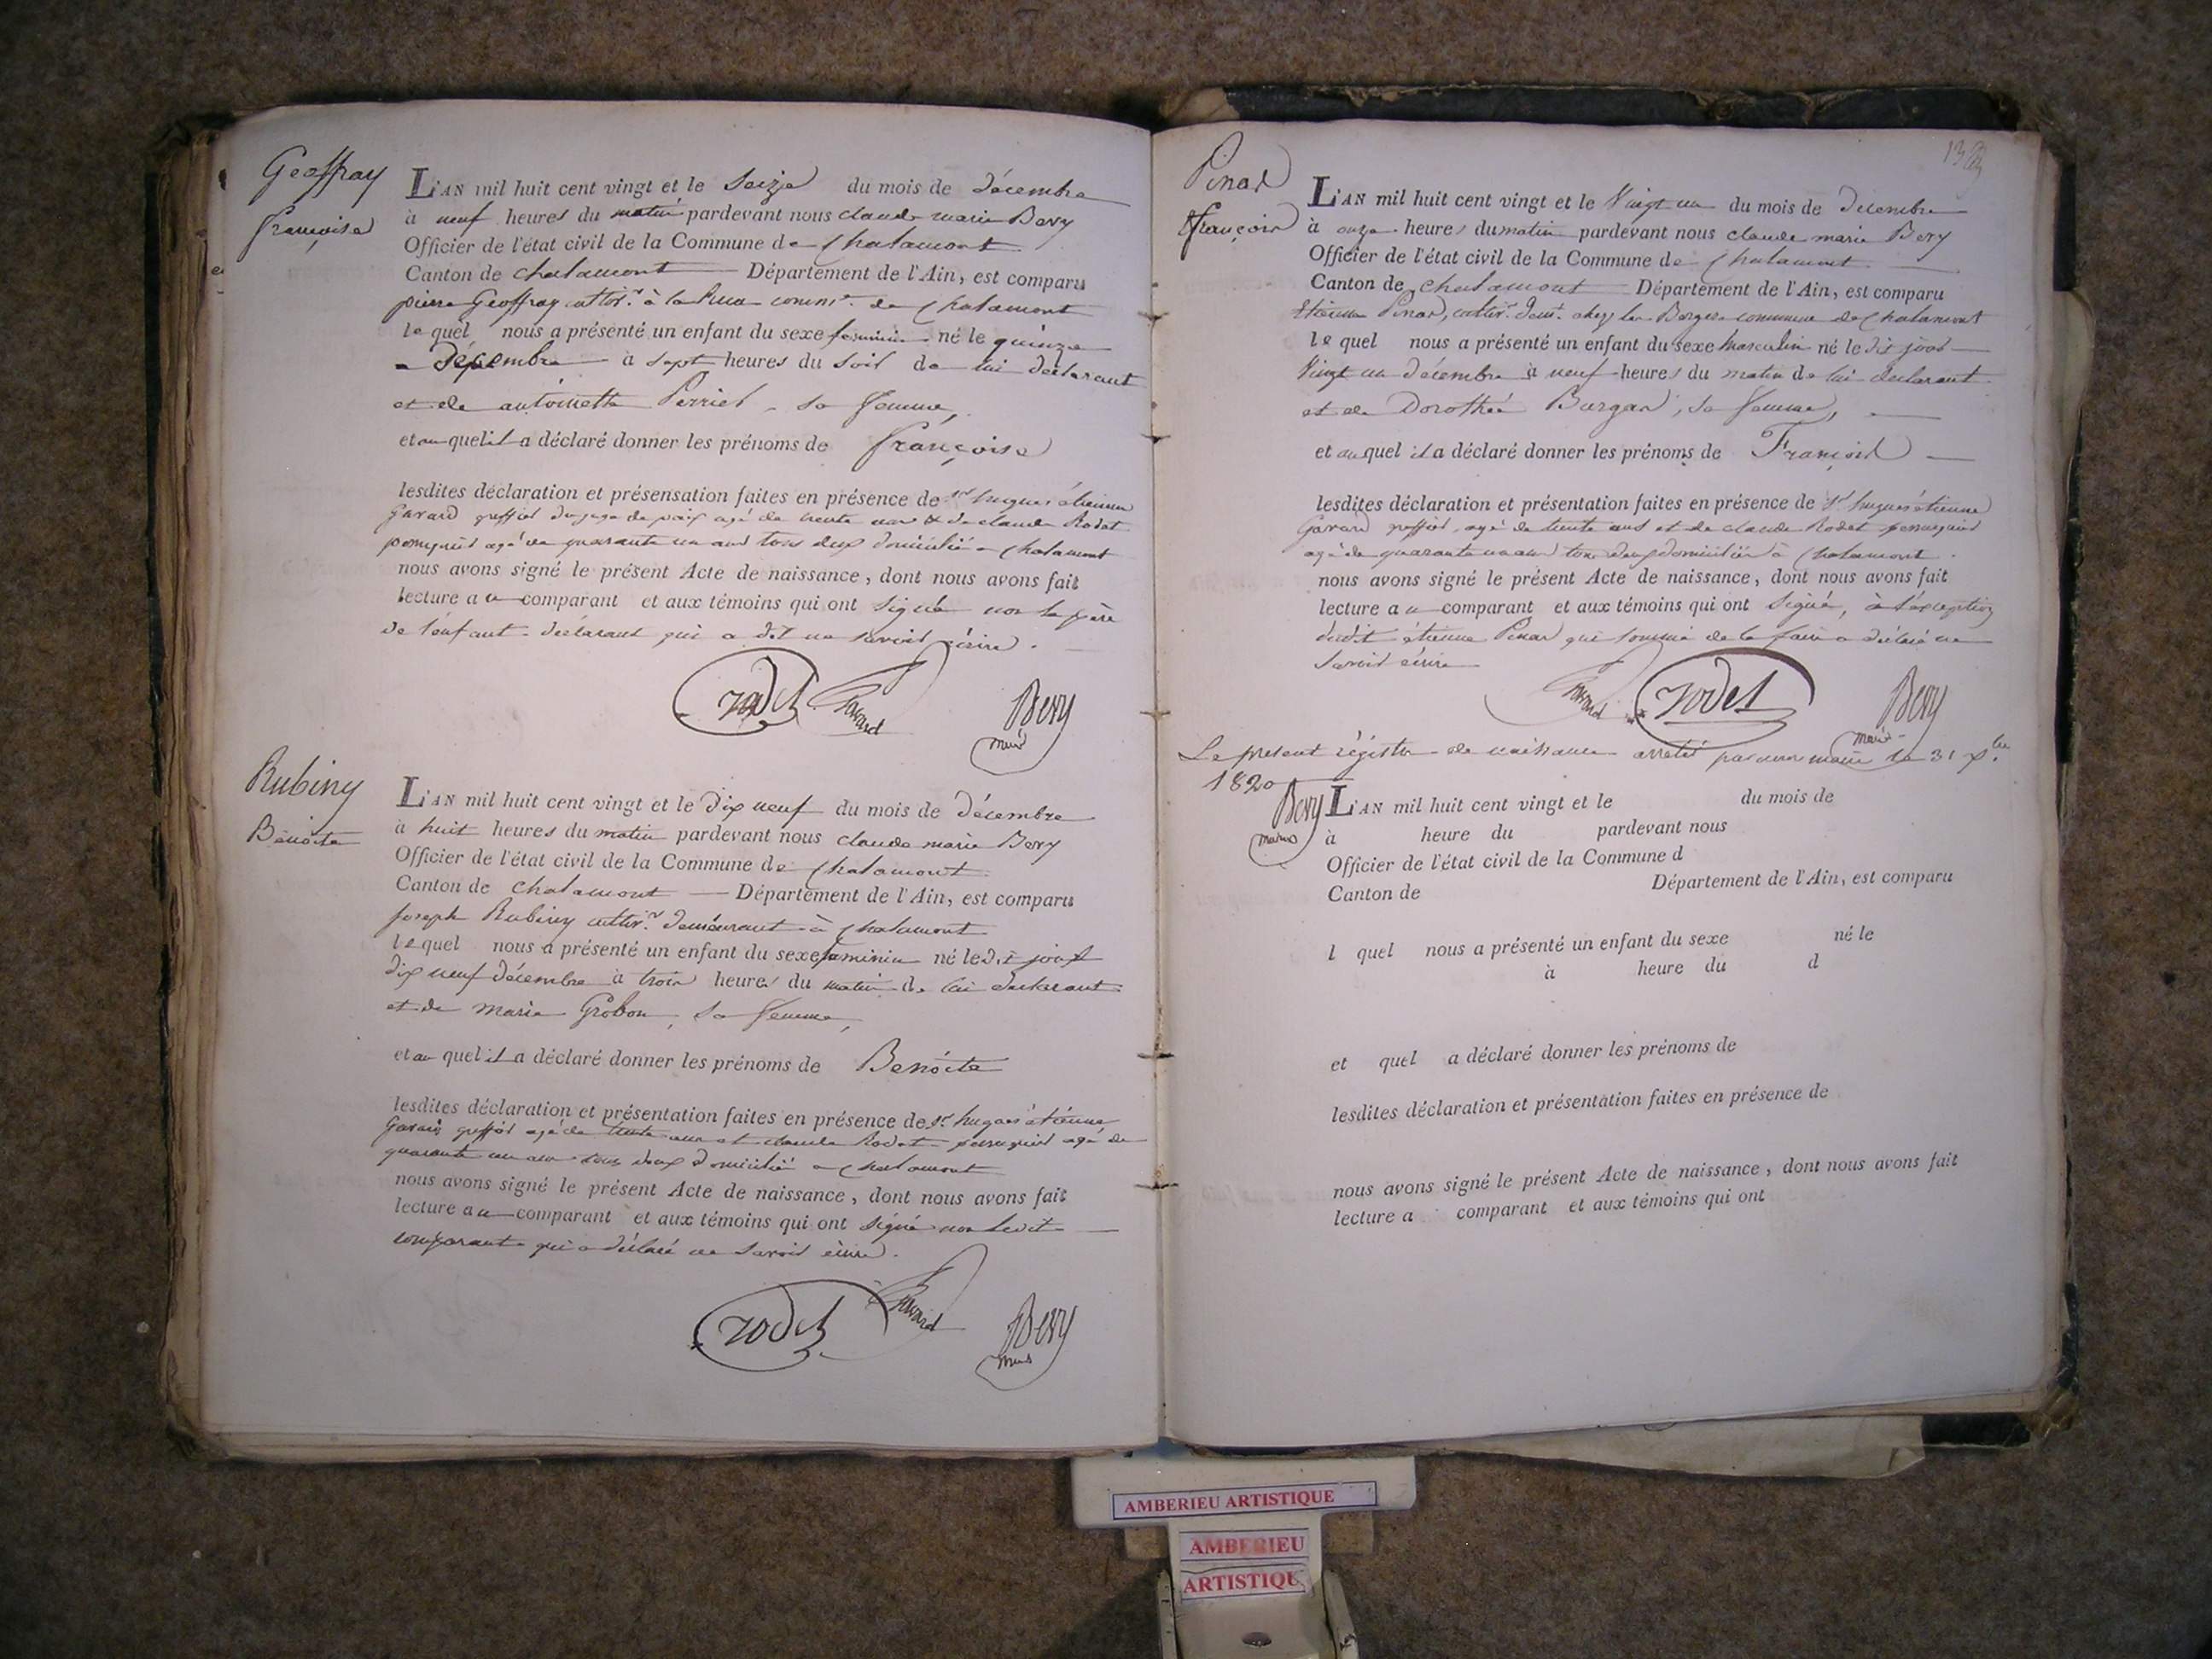 Geoffray
françoise
L'AN mil huit cent vingt et le Seize du mois de décembre
à neuf heures du matin pardevant nous claude marie Bery
Officier de l'état civil de la Commune de Chalamont
Canton de chalamont Département de l'Ain, est comparu
pierre Geoffray cultiv.r à la comm.e de Chalamont
le quel nous a présenté un enfant du sexe feminin né le quinze
Décembre à sept heures du soir de lui declarant
et de antoinette Perrier sa femme,
et au quel il a déclaré donner les prénoms de françoise
lesdites déclaration et présensation faites en présence de s.r hugues étienne
Gavard greffier du juge de paix agé de trente ans & de claude Rodet
perruquier agé de quarante un ans tous deux domicilié a Chalamont
nous avons signé le présent Acte de naissance, dont nous avons fait
lecture a u comparant et aux témoins qui ont signé non le père
de l'enfant declarant qui a dit ne savoir écrire.
rodet Gavard Bery
maire
Rubiny
Benoite
L'AN mil huit cent vingt et le dix neuf du mois de décembre
à huit heures du matin pardevant nous claude marie Bery
Officier de l'état civil de la Commune de Chalamont
Canton de chalamont Département de l'Ain, est comparu
joseph Rubiny cultiv.r demeurant à Chalamont
le quel nous a présenté un enfant du sexe feminin né le dit jour
dix neuf décembre à trois heures du matin de lui declarant
et de marie Grobon, sa femme,
et au quel il a déclaré donner les prénoms de Benoite
lesdites déclaration et présentation faites en présence de s.r hugues étienne
Gavard greffier agé de trente ans et claude Rodet perruquier agé de
quarante un ans tous deux domicilié a Chalamont
nous avons signé le présent Acte de naissance, dont nous avons fait
lecture a u comparant et aux témoins qui ont signé non ledit
comparant qui a déclaré ne savoir écrire.
rodet Gavard Bery
maire
Pinar
françois
L'AN mil huit cent vingt et le Vingt un du mois de décembre
à onze heures du matin pardevant nous claude marie Bery
Officier de l'état civil de la Commune de Chalamont
Canton de chalamont Département de l'Ain, est comparu
Etienne Pinar, cultiv.r dem.t chez les Berger commune de Chalamont
le quel nous a présenté un enfant du sexe masculin né le dit jour
Vingt un décembre à neuf heures du matin de lui declarant
et de Dorothée Burgar, sa femme,
et au quel il a déclaré donner les prénoms de François
lesdites déclaration et présentation faites en présence de s.r hugues étienne
Gavard greffier, agé de trente ans et de claude Rodet perruquier
agé de quarante un ans tous deux domiciliés à Chalamont.
nous avons signé le présent Acte de naissance, dont nous avons fait
lecture a u comparant et aux témoins qui ont signé, à l'exception
dudit étienne Pinar qui sommé de le faire a déclaré ne
savoir écrire
Gavard rodet Bery
maire
Le present régistre de naissance arreté par nous maire le 31 x.bre
1820
Bery
maire
L'AN mil huit cent vingt et le du mois de
à heure du pardevant nous
Officier de l'état civil de la Commune d
Canton de Département de l'Ain, est comparu
l quel nous a présenté un enfant du sexe né le
à heure du d
et quel a déclaré donner les prénoms de
lesdites déclaration et présentation faites en présence de
nous avons signé le présent Acte de naissance, dont nous avons fait
lecture a comparant et aux témoins qui ont
AMBERIEU ARTISTIQUE
AMBERIEU
ARTISTIQUE